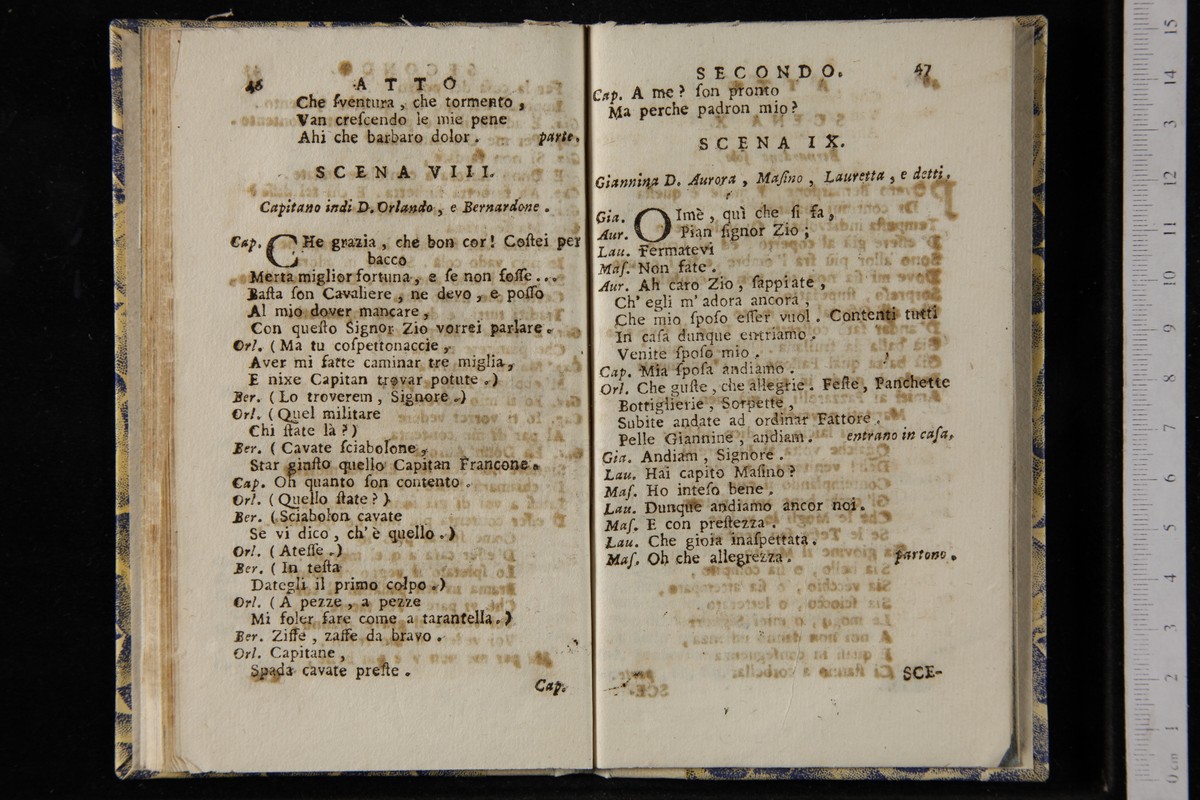 46 A T T O
Che ſventura , che tormento ,
Van creſcendo le mie pene
Ahi che barbaro dolor . parte.
S C E N A V I I I.
Capitano indi D. Orlando , e Bernardone .
Cap. CHe grazia , che bon cor! Coſtei per
bacco
Merta miglior fortuna , e ſe non foſſe ...
Baſta ſon Cavaliere , ne devo , e poſſo
Al mio dover mancare ,
Con queſto Signor Zio vorrei parlare .
Orl. ( Ma tu coſpettonaccie ,
Aver mi fatte caminar tre miglia ,
E nixe Capitan trovar potute .)
Ber. ( Lo troverem , Signore .)
Orl. ( Quel militare
Chi ſtate là ? )
Ber. ( Cavate ſciabolone ,
Star giuſto quello Capitan Francone .
Cap. Oh quanto ſon contento .
Orl. ( Quello ſtate ? )
Ber. ( Sciabolon cavate
Se vi dico , ch' è quello . )
Orl. ( Ateſſe .)
Ber. ( In teſta
Dategli il primo colpo .)
Orl. ( A pezze , a pezze
Mi foler fare come a tarantella . )
Ber. Ziffe , zaffe da bravo .
Orl. Capitane ,
Spada cavate preſte .
Cap.
S E C O N D O. 47
Cap. A me ? ſon pronto
Ma perche padron mio ?
S C E N A I X.
Giannina D. Aurora , Maſino , Lauretta , e detti .
Gia. OImè , quì che ſi fa ,
Aur. Pian ſignor Zio ;
Lau. Fermatevi
Maſ. Non fate .
Aur. Ah caro Zio , ſappiate ,
Ch' egli m' adora ancora ,
Che mio ſpoſo eſſer vuol . Contenti tutti
In caſa dunque entriamo .
Venite ſpoſo mio .
Cap. Mia ſpoſa andiamo .
Orl. Che guſte , che allegrie . Feſte , Panchette
Bottiglierie , Sorpette ,
Subite andate ad ordinar Fattore .
Pelle Giannine , andiam . entrano in caſa.
Gia. Andiam , Signore .
Lau. Hai capito Maſino ?
Maſ. Ho inteſo bene .
Lau. Dunque andiamo ancor noi .
Maſ. E con preſtezza .
Lau. Che gioia inaſpettata .
Maſ. Oh che allegrezza . partono .
SCE-
0 cm 1 2 3 4 5 6 7 8 9 10 11 12 3 14 15